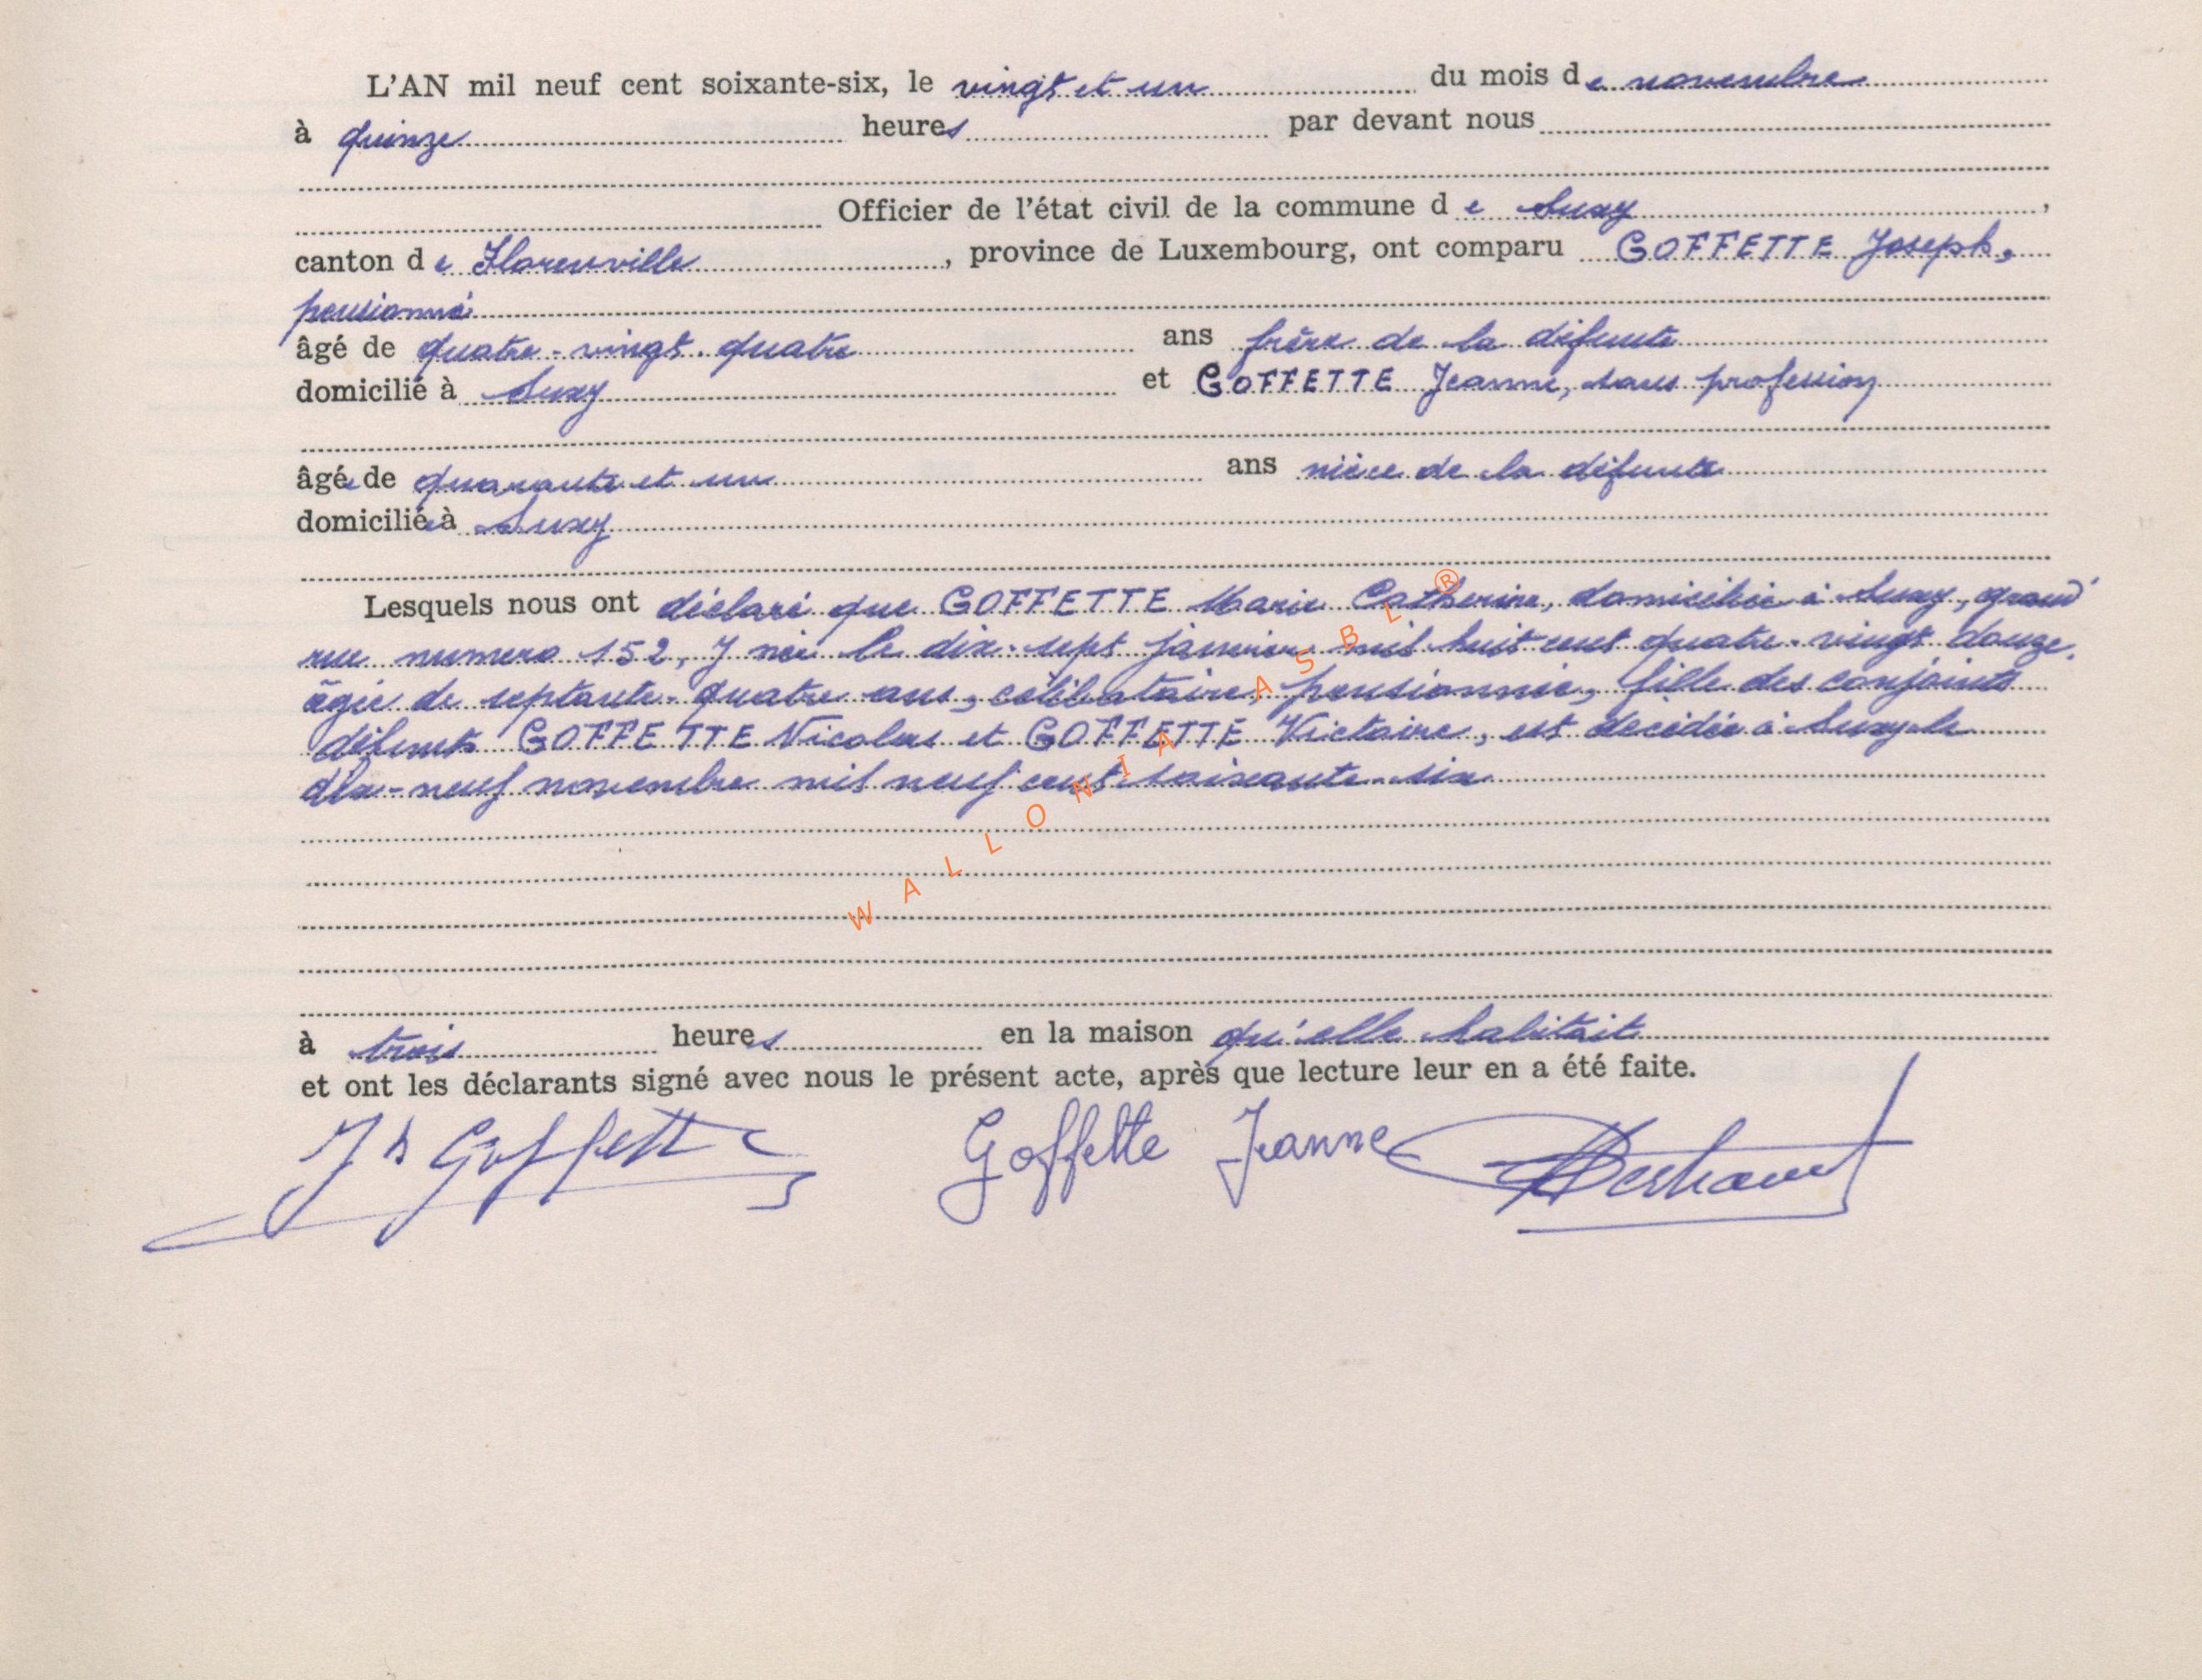 L'AN mil neuf cent soixante-six, le vingt et un du mois de novembre
à quinze heures par devant nous
Officier de l'état civil de la commune de Suxy,
canton de Florenville, province de Luxembourg, ont comparu GOFFETTE Joseph,
pensionné
âgé de quatre-vingt-quatre ans frère de la défunte
domicilié à Suxy et GOFFETTE Jeanne, sans profession
âgée de quarante et un ans nièce de la défunte
domiciliée à Suxy
Lesquels nous ont déclaré que GOFFETTE Marie Catherine, domiciliée à Suxy, grand'
rue numero 152, y née le dix-sept janvier mil huit cent quatre-vingt douze,
âgée de septante-quatre ans, célibataire, pensionnée, fille des conjoints
défunts GOFFETTE Nicolas et GOFFETTE Victoire, est décédée à Suxy le
dix-neuf novembre mil neuf cent soixante-six
WALLONIA ASBL ®
à trois heures en la maison qu'elle habitait
et ont les déclarants signé avec nous le présent acte, après que lecture leur en a été faite.
Jh Goffette Goffette Jeanne